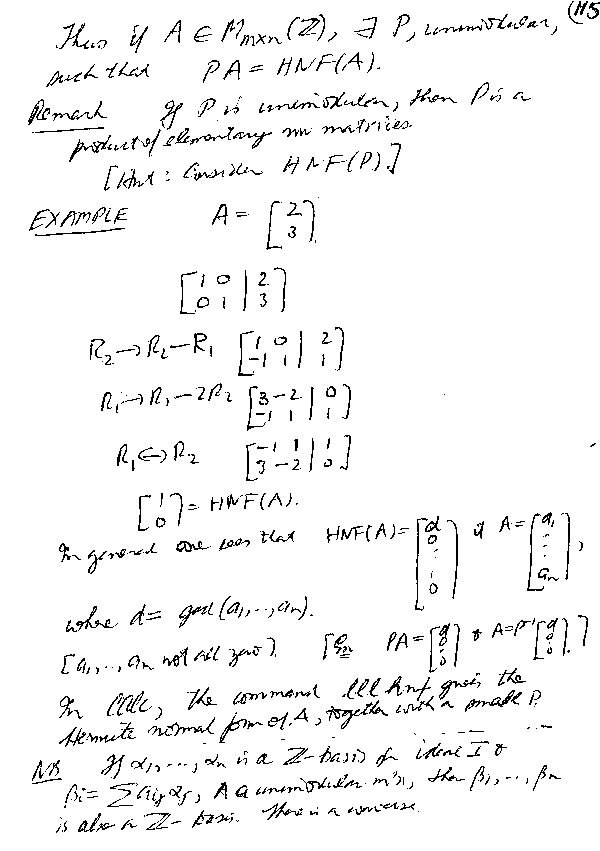 (115
Thus if A ∈ M_{m×n}(ℤ), ∃ P, unimodular,
such that PA = HNF(A).
Remark If P is unimodular, then P is a
product of elementary row matrices.
[Hint: Consider HNF(P)]
EXAMPLE A = [2; 3].
[1 0 | 2; 0 1 | 3]
R₂ → R₂ − R₁ [1 0 | 2; −1 1 | 1]
R₁ → R₁ − 2R₂ [3 −2 | 0; −1 1 | 1]
R₁ ↔ R₂ [−1 1 | 1; 3 −2 | 0]
[1; 0] = HNF(A).
In general one sees that HNF(A) = [d; 0; ⋮; 0] if A = [a₁; ⋮; aₙ],
where d = gcd(a₁, .., aₙ).
[a₁, .., aₙ not all zero]. [ PA = [d; 0; 0] & A = P⁻¹[d; 0; 0]. ]
In CALC, the command lllhnf gives the
Hermite normal form of A, together with a small P.
NB If α₁, ..., αₙ is a ℤ-basis for ideal I &
βᵢ = Σ aᵢⱼ αⱼ, A a unimodular m'x, then β₁, ..., βₙ
is also a ℤ-basis. There is a converse.